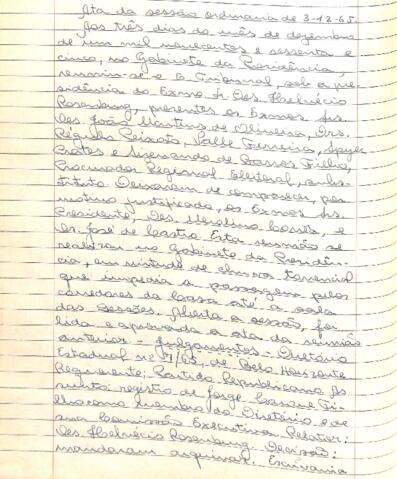 Ata da sessão ordinaria de 3-12-65.
Aos três dias do mês de dezembro
de um mil novecentos e sessenta e
cinco, no Gabinete da Presidência,
reuniu-se o E. Tribunal, sob a pre-
sidência do Exmo. Sr. Des. Helvécio
Rosenburg, presentes os Exmos. Srs.
Des. João Martins de Oliveira, Drs.
Régulo Peixoto, Valle Ferreira,
Prates e de Barros Filho,
Procurador Regional Eleitoral, subs-
tituto. Deixaram de comparecer, por
motivo justificado, os Exmos. Srs.
Presidente, Des. Merolino Corrêa, e
Dr. José de Castro. Esta reunião se
realizou no Gabinete da Presidên-
cia, em virtude de chuva torrencial
que impedia a passagem pelos
corredores da Casa até a sala
das Sessões. Aberta a sessão, foi
lida e aprovada a ata da reunião
anterior - Julgamentos - Diretório
Estadual nº 7/65, de Belo Horizonte
Requerente: Partido Republicano As
sunto: registro de Jorge Fi-
lho como membro do Diretório e de
sua Comissão Executiva. Relator:
Des. Helvécio Rosenburg. Decisão:
mandaram arquivar. Escrivania